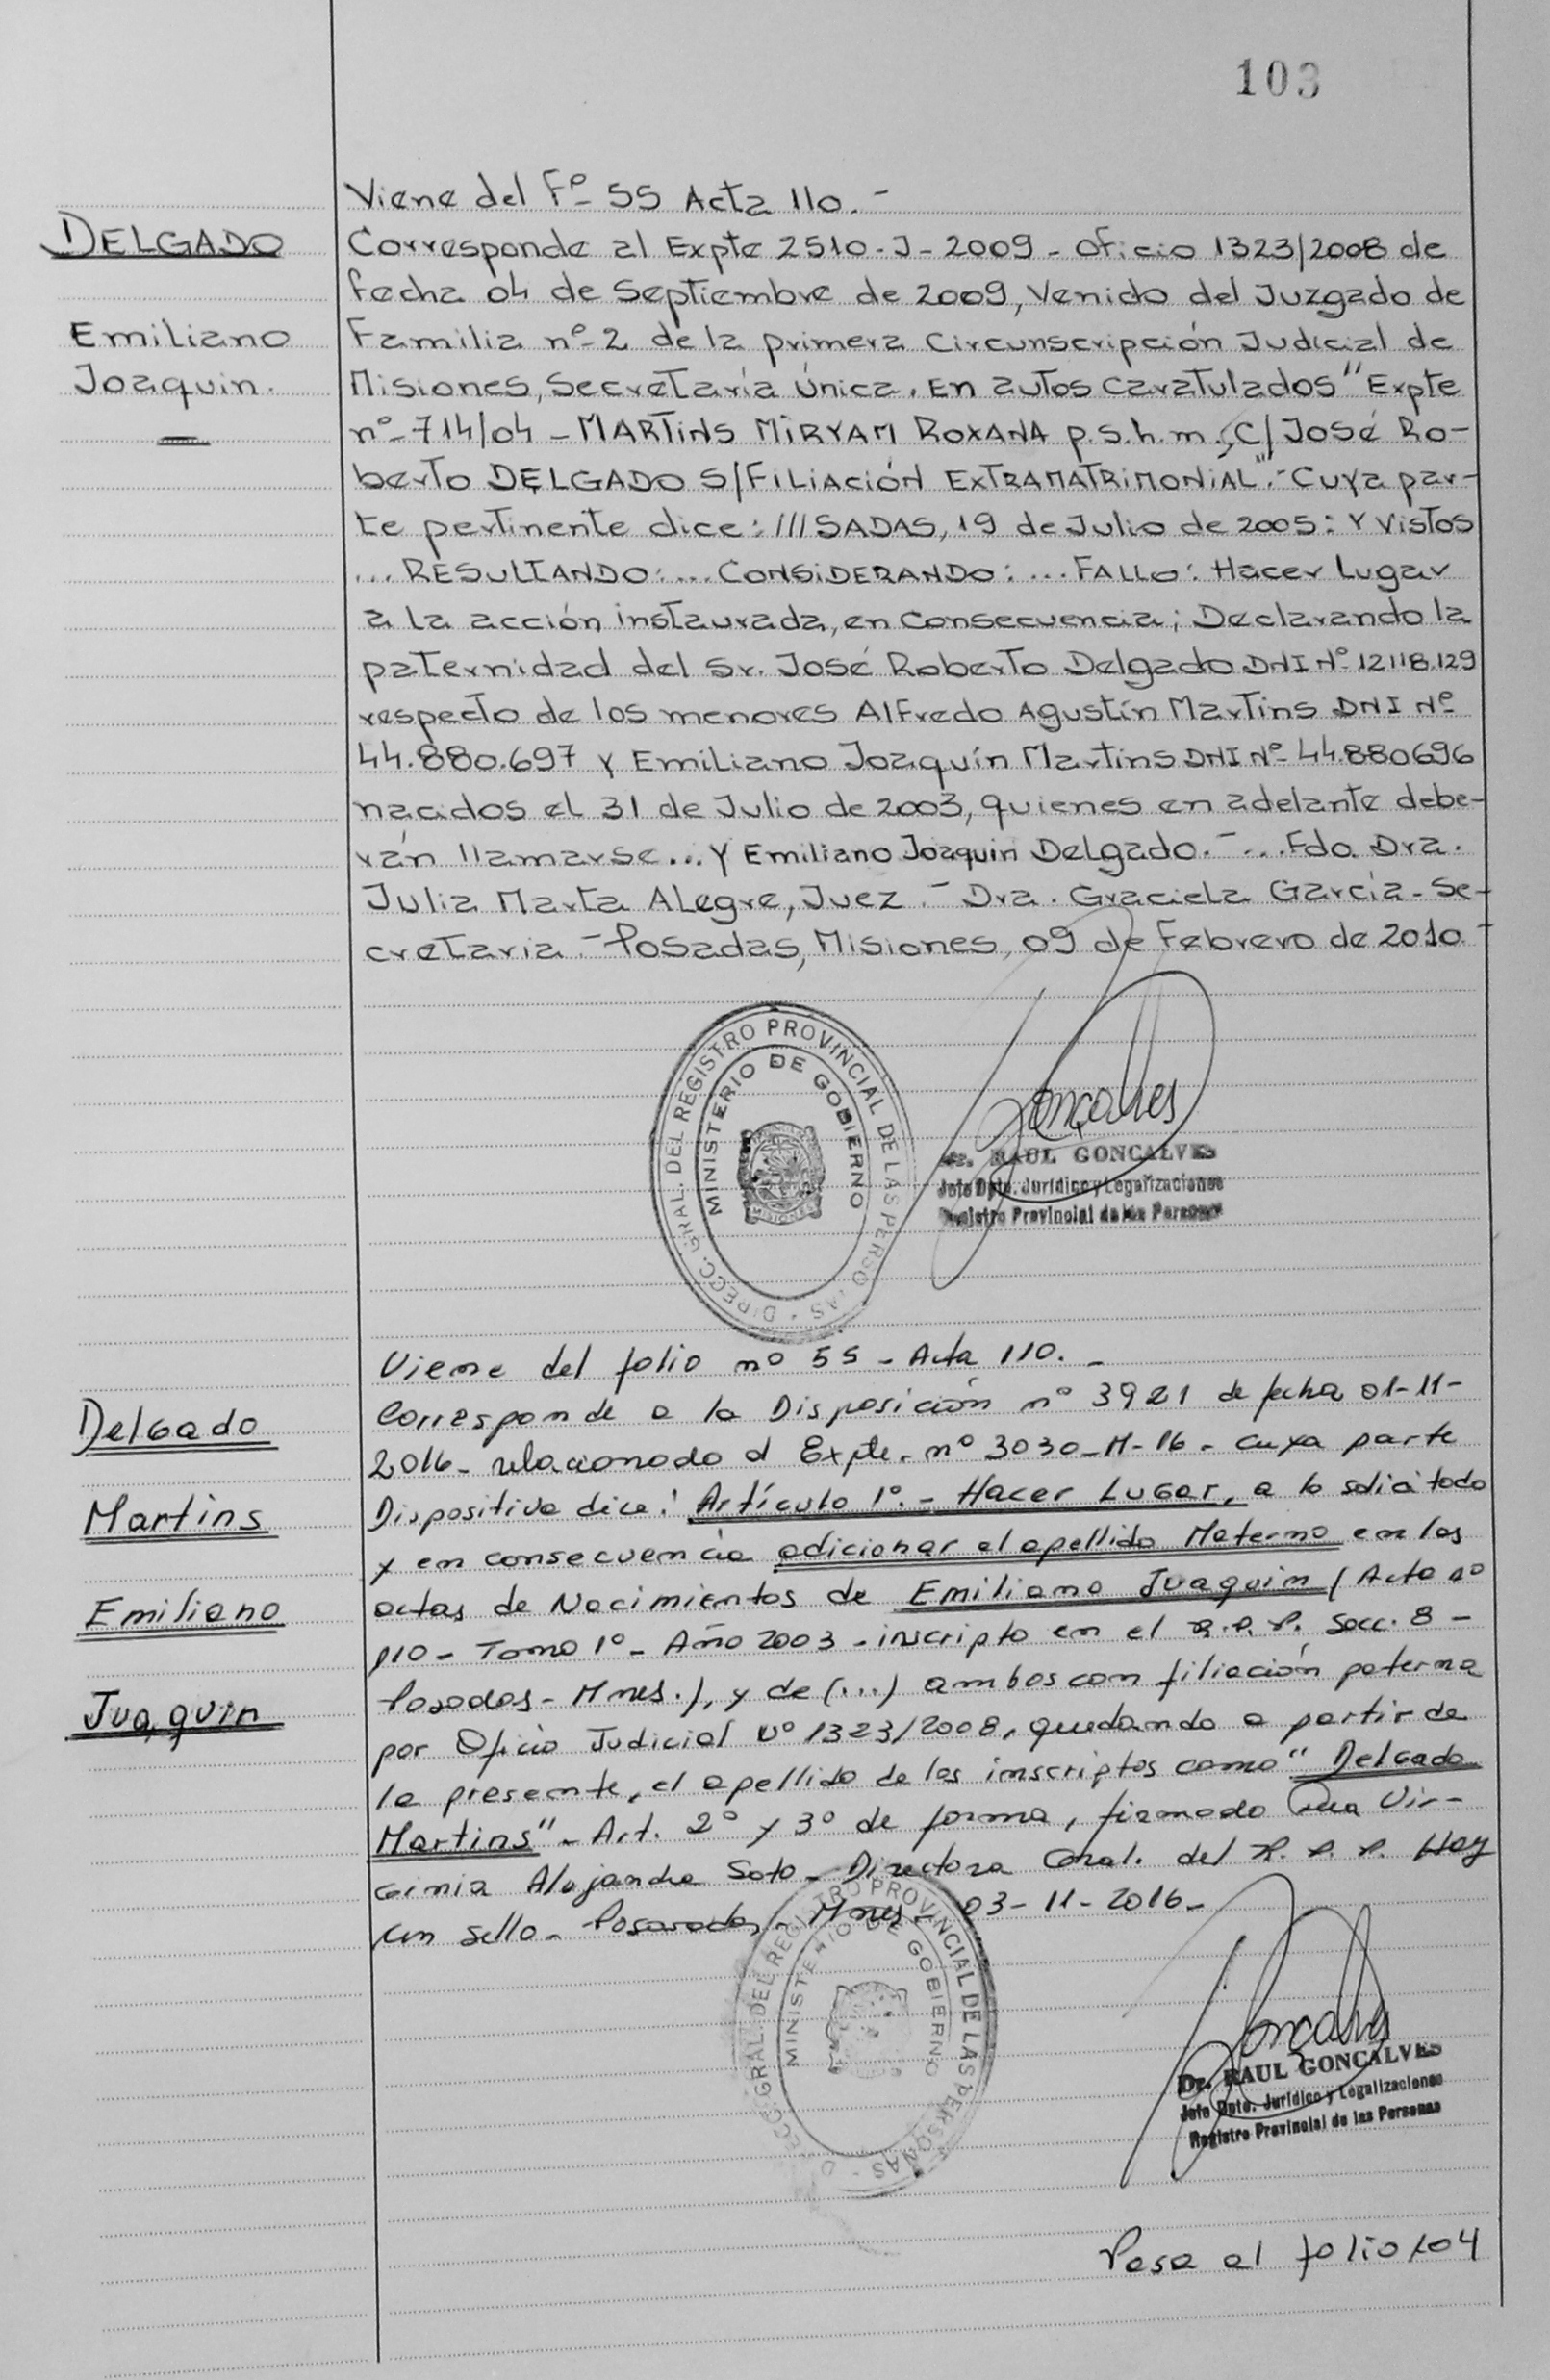 103
Viene del Fº- 55 Acta 110.-
DELGADO
Corresponde al Expte 2510-J-2009-Oficio 1323/2008 de
fecha 04 de Septiembre de 2009, Venido del Juzgado de
Emiliano
Familia nº-2 de la primera Circunscripción Judicial de
Joaquin.
Misiones, Secretaría Única. En autos caratulados "Expte
nº-714/04-MARTINS MIRYAM ROXANA p.s.h.m., C/ José Ro-
berto DELGADO S/FILIACIÓN EXTRAMATRIMONIAL".-Cuya par-
te pertinente dice: ///SADAS, 19 de Julio de 2005: Y Vistos
...RESULTANDO:...CONSIDERANDO:...FALLO: Hacer Lugar
a la acción instaurada, en Consecuencia; Declarando la
paternidad del Sr. José Roberto Delgado DNI Nº-12118.129
respecto de los menores Alfredo Agustín Martins DNI Nº
44.880.697 y Emiliano Joaquín Martins DNI Nº-44.880696
nacidos el 31 de Julio de 2003, quienes en adelante debe-
rán llamarse... Y Emiliano Joaquin Delgado.-...Fdo. Dra.
Julia Marta Alegre, Juez.- Dra. Graciela García-Se-
cretaria.-Posadas, Misiones, 09 de Febrero de 2010.-
DIRECC. GRAL. DEL REGISTRO PROVINCIAL DE LAS PERSONAS
MINISTERIO DE GOBIERNO
MISIONES
Gonçalves
Dr. RAUL GONCALVES
Jefe Dpto. Jurídico y Legalizaciones
Registro Provincial de las Personas
Viene del folio nº 55 - Acta 110.-
Delgado
Corresponde a la Disposición nº 3921 de fecha 01-11-
2016- relacionado al Expte. nº 3030-M-16- cuya parte
Martins
Dispositiva dice: Artículo 1º.- Hacer Lugar, a lo solicitado
y en consecuencia adicionar el apellido Materno en las
Emiliano
actas de Nacimientos de Emiliano Juaquin (Acta nº
110- Tomo 1º- Año 2003-inscripto en el R.P.P. Secc. 8-
Juaquin
Posadas- Mnes.), y de (...) ambos con filiación paterna
por Oficio Judicial Nº 1323/2008, quedando a partir de
la presente, el apellido de los inscriptos como "Delgado
Martins"- Art. 2º y 3º de forma, firmado Dra Vir-
ginia Alejandra Soto- Directora Gral. del R.P.P. Hay
un sello- Posadas- Mnes- 03-11-2016-
DIRECC. GRAL. DEL REGISTRO PROVINCIAL DE LAS PERSONAS
MINISTERIO DE GOBIERNO
Gonçalves
Dr. RAUL GONCALVES
Jefe Dpto. Jurídico y Legalizaciones
Registro Provincial de las Personas
Pasa al folio 104